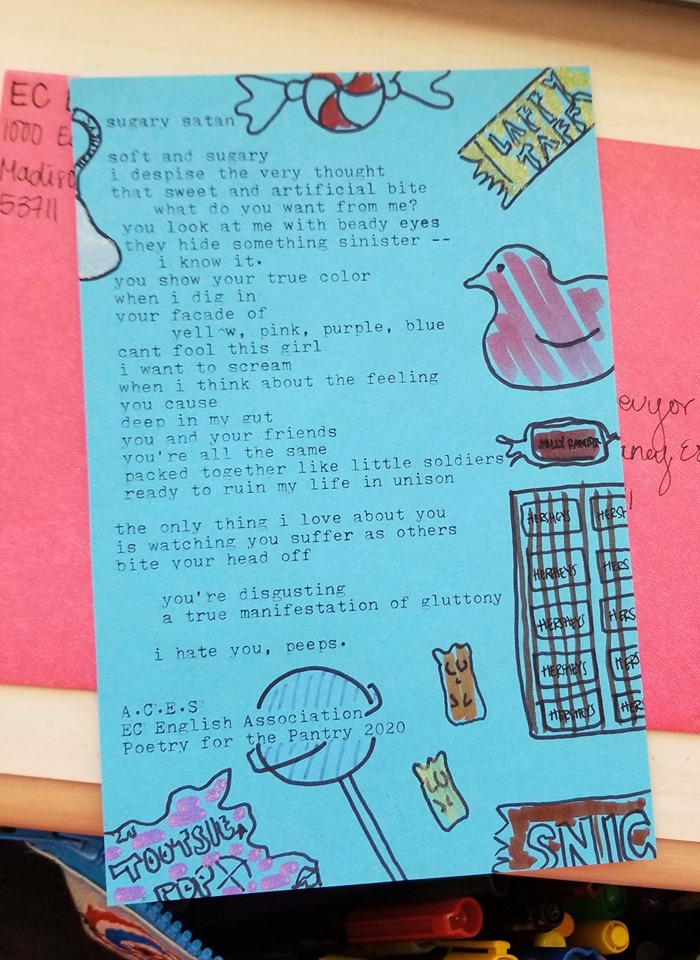 EC
1000 E
Madiso
53711
sugary satan
soft and sugary
i despise the very thought
that sweet and artificial bite
what do you want from me?
you look at me with beady eyes
they hide something sinister --
i know it.
you show your true color
when i dig in
your facade of
yellow, pink, purple, blue
cant fool this girl
i want to scream
when i think about the feeling
you cause
deep in my gut
you and your friends
you're all the same
packed together like little soldiers
ready to ruin my life in unison
the only thing i love about you
is watching you suffer as others
bite your head off
you're disgusting
a true manifestation of gluttony
i hate you, peeps.
A.C.E.S
EC English Association
Poetry for the Pantry 2020
LAFFY
TAFF
JOLLY RANCHER
HERSHEYS HERSH
HERSHEYS HERS
HERSHEYS HERS
HERSHEYS HERS
HERSHEYS HER
TOOTSIE
POP
SNIC
evyor